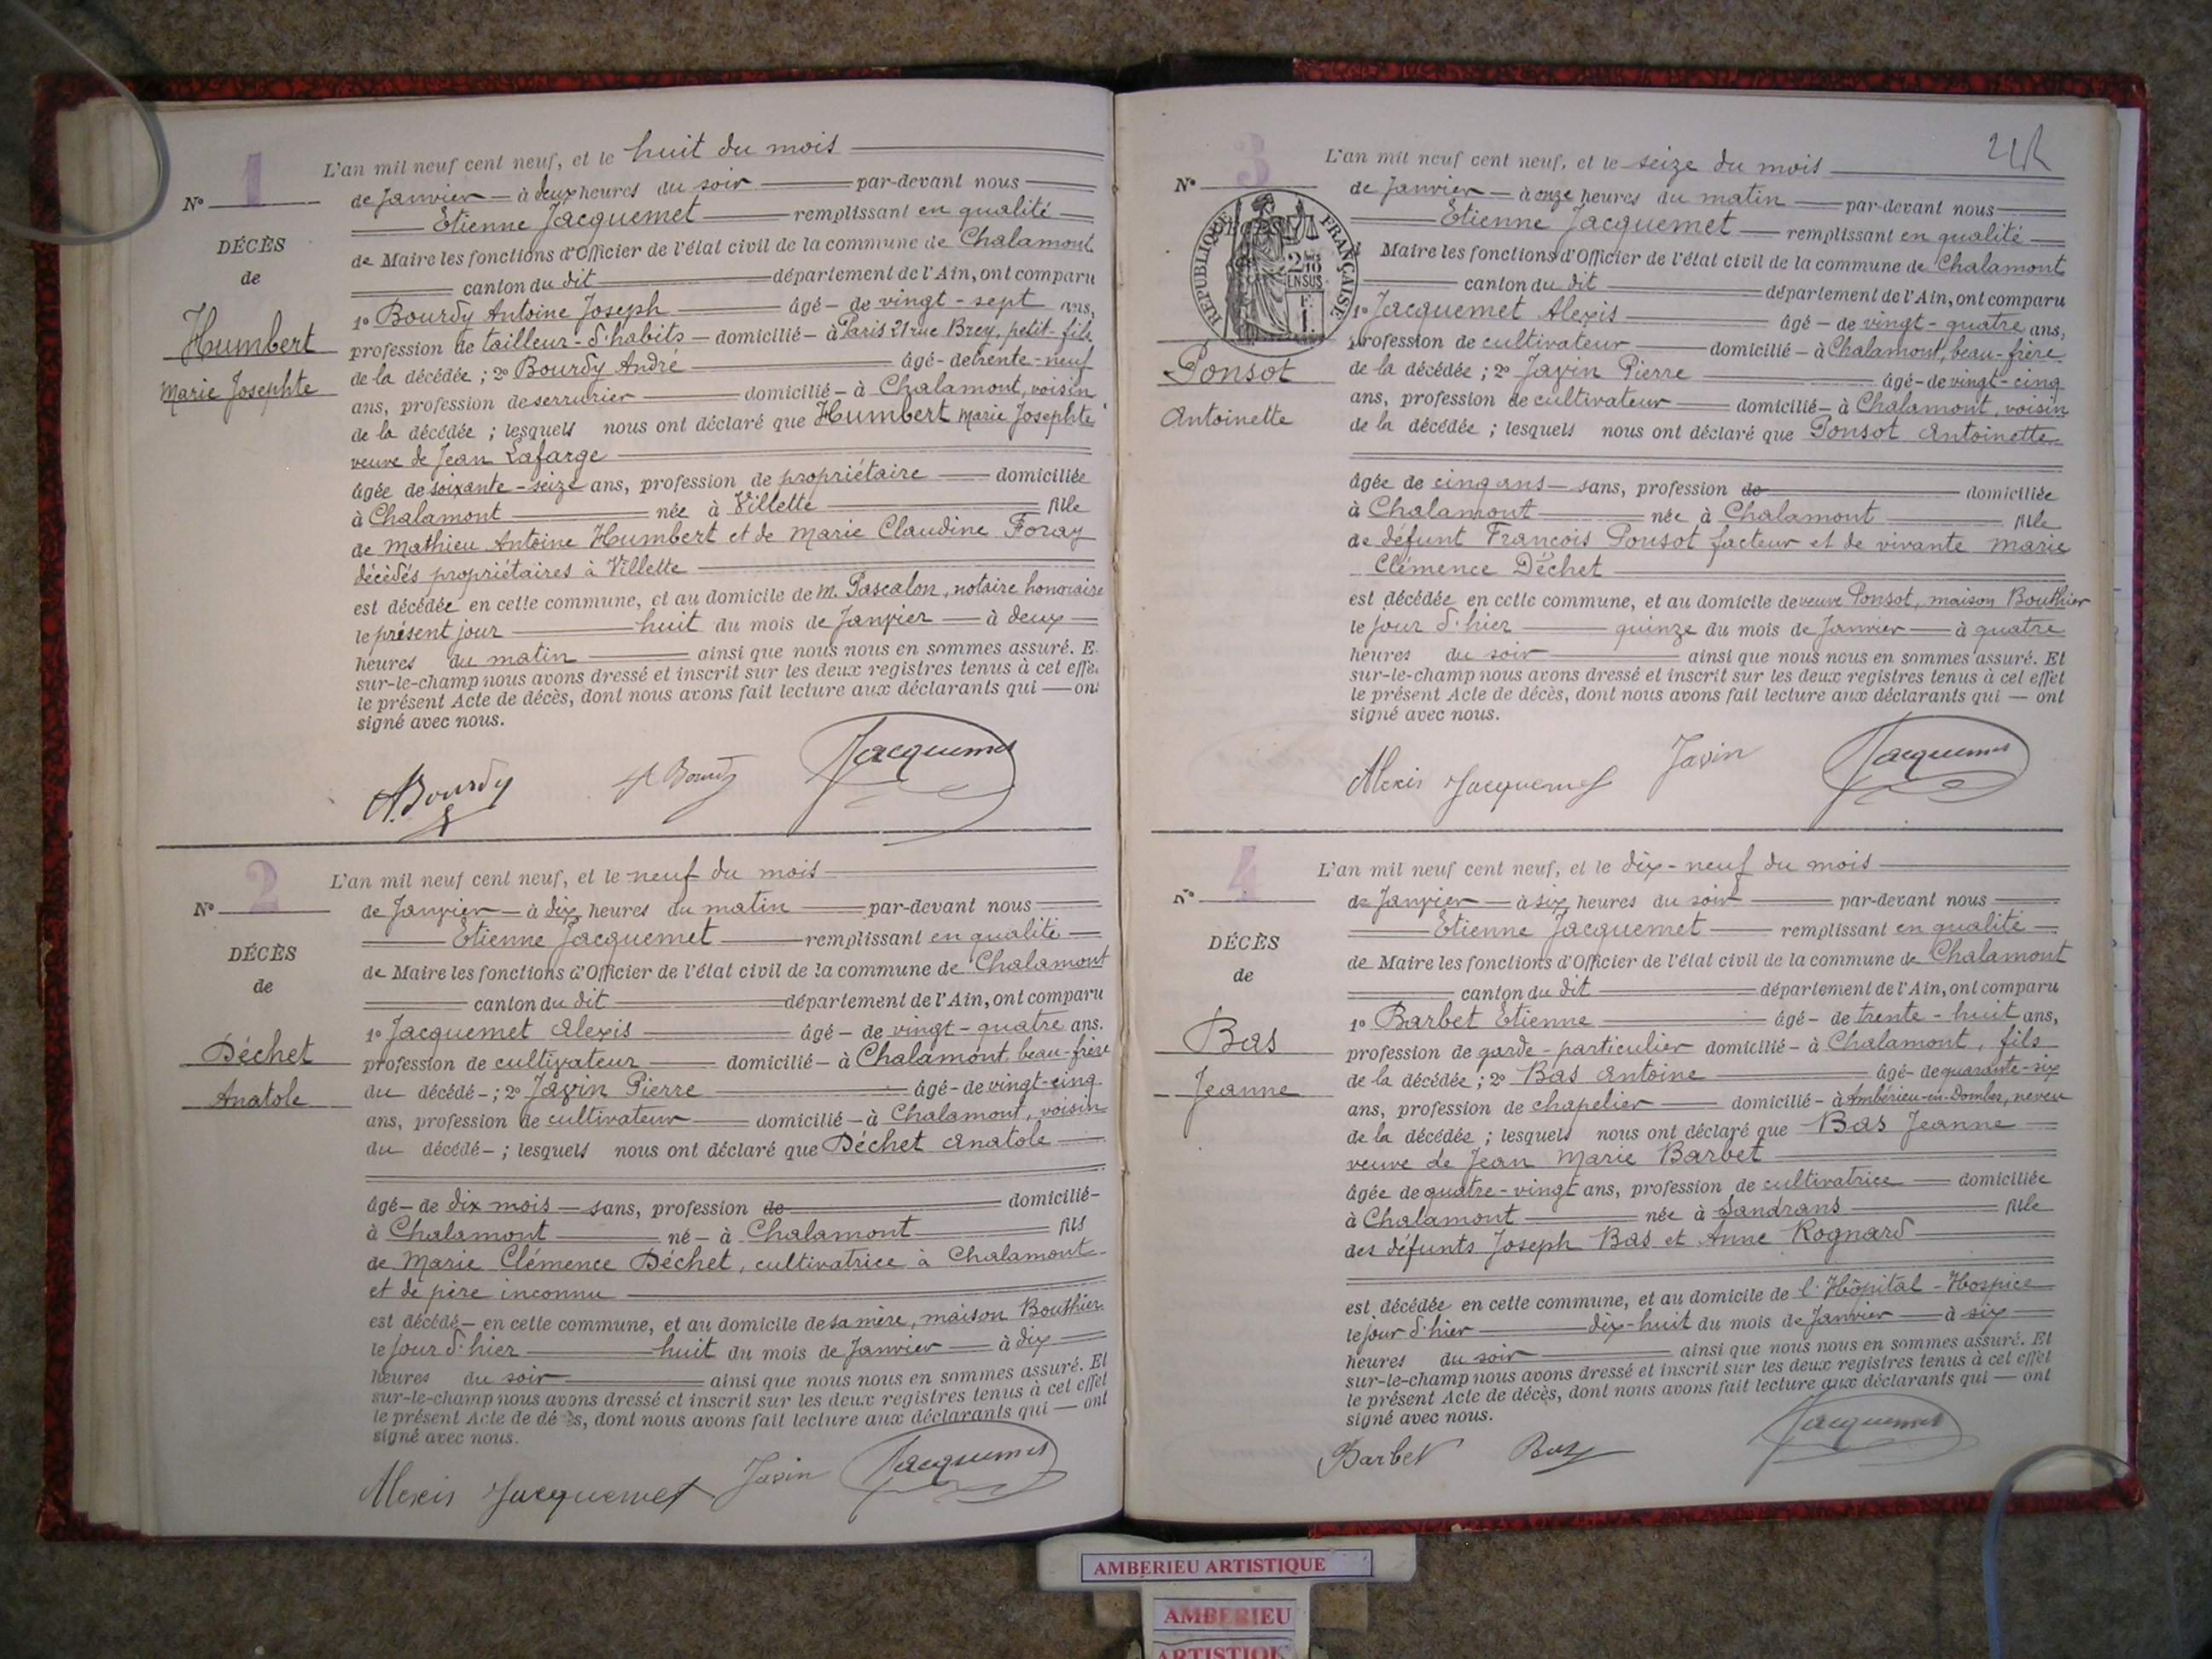 1
N°
DÉCÈS
de
Humbert
Marie Josephte
L'an mil neuf cent neuf, et le huit du mois
de Janvier à deux heures du soir par-devant nous
Etienne Jacquemet remplissant en qualité
de Maire les fonctions d'Officier de l'état civil de la commune de Chalamont
canton du dit département de l'Ain, ont comparu
1° Bourdy Antoine Joseph âgé de vingt-sept ans,
profession de tailleur-d'habits domicilié à Paris 21 rue Brey, petit-fils
de la décédée ; 2° Bourdy André âgé de trente-neuf
ans, profession de serrurier domicilié à Chalamont, voisin
de la décédée ; lesquels nous ont déclaré que Humbert Marie Josephte
veuve de Jean Lafarge
âgée de soixante-seize ans, profession de propriétaire domiciliée
à Chalamont née à Villette fille
de Mathieu Antoine Humbert et de Marie Claudine Foray
décédés propriétaires à Villette
est décédée en cette commune, et au domicile de M. Pascalon, notaire honoraire
le présent jour huit du mois de Janvier à deux
heures du matin ainsi que nous nous en sommes assuré. E
sur-le-champ nous avons dressé et inscrit sur les deux registres tenus à cet effe
le présent Acte de décès, dont nous avons fait lecture aux déclarants qui ont
signé avec nous.
A. Bourdy A Bourdy Jacquemet
2
N°
DÉCÈS
de
Déchet
Anatole
L'an mil neuf cent neuf, et le neuf du mois
de Janvier à dix heures du matin par-devant nous
Etienne Jacquemet remplissant en qualité
de Maire les fonctions d'Officier de l'état civil de la commune de Chalamont
canton du dit département de l'Ain, ont comparu
1° Jacquemet Alexis âgé de vingt-quatre ans.
profession de cultivateur domicilié à Chalamont, beau-frère
du décédé ; 2° Javin Pierre âgé de vingt-cinq
ans, profession de cultivateur domicilié à Chalamont, voisin
du décédé ; lesquels nous ont déclaré que Déchet Anatole
âgé de dix mois sans, profession de domicilié
à Chalamont né à Chalamont fils
de Marie Clémence Déchet, cultivatrice à Chalamont
et de père inconnu
est décédé en cette commune, et au domicile de sa mère, maison Bouthier
le jour d'hier huit du mois de Janvier à dix
heures du soir ainsi que nous nous en sommes assuré. Et
sur-le-champ nous avons dressé et inscrit sur les deux registres tenus à cet effet
le présent Acte de décès, dont nous avons fait lecture aux déclarants qui ont
signé avec nous.
Alexis Jacquemet Javin Jacquemet
3
N°
RÉPUBLIQUE FRANÇAISE
Ponsot
Antoinette
L'an mil neuf cent neuf, et le seize du mois
de Janvier à onze heures du matin par-devant nous
Etienne Jacquemet remplissant en qualité
Maire les fonctions d'Officier de l'état civil de la commune de Chalamont
canton du dit département de l'Ain, ont comparu
1° Jacquemet Alexis âgé de vingt-quatre ans,
profession de cultivateur domicilié à Chalamont, beau-frère
de la décédée ; 2° Javin Pierre âgé de vingt-cinq
ans, profession de cultivateur domicilié à Chalamont, voisin
de la décédée ; lesquels nous ont déclaré que Ponsot Antoinette
âgée de cinq ans sans, profession de domiciliée
à Chalamont née à Chalamont fille
de défunt François Ponsot facteur et de vivante Marie
Clémence Déchet
est décédée en cette commune, et au domicile de veuve Ponsot, maison Bouthier
le jour d'hier quinze du mois de Janvier à quatre
heures du soir ainsi que nous nous en sommes assuré. Et
sur-le-champ nous avons dressé et inscrit sur les deux registres tenus à cet effet
le présent Acte de décès, dont nous avons fait lecture aux déclarants qui ont
signé avec nous.
Alexis Jacquemet Javin Jacquemet
4
N°
DÉCÈS
de
Bas
Jeanne
L'an mil neuf cent neuf, et le dix-neuf du mois
de Janvier à six heures du soir par-devant nous
Etienne Jacquemet remplissant en qualité
de Maire les fonctions d'Officier de l'état civil de la commune de Chalamont
canton du dit département de l'Ain, ont comparu
1° Barbet Etienne âgé de trente-huit ans,
profession de garde-particulier domicilié à Chalamont, fils
de la décédée ; 2° Bas Antoine âgé de quarante-six
ans, profession de chapelier domicilié à Ambérieu-en-Dombes, neveu
de la décédée ; lesquels nous ont déclaré que Bas Jeanne
veuve de Jean Marie Barbet
âgée de quatre-vingt ans, profession de cultivatrice domiciliée
à Chalamont née à Sandrans fille
des défunts Joseph Bas et Anne Rognard
est décédée en cette commune, et au domicile de l'Hôpital-Hospice
le jour d'hier dix-huit du mois de Janvier à six
heures du soir ainsi que nous nous en sommes assuré. Et
sur-le-champ nous avons dressé et inscrit sur les deux registres tenus à cet effet
le présent Acte de décès, dont nous avons fait lecture aux déclarants qui ont
signé avec nous.
Barbet Bas Jacquemet
AMBERIEU ARTISTIQUE
AMBERIEU